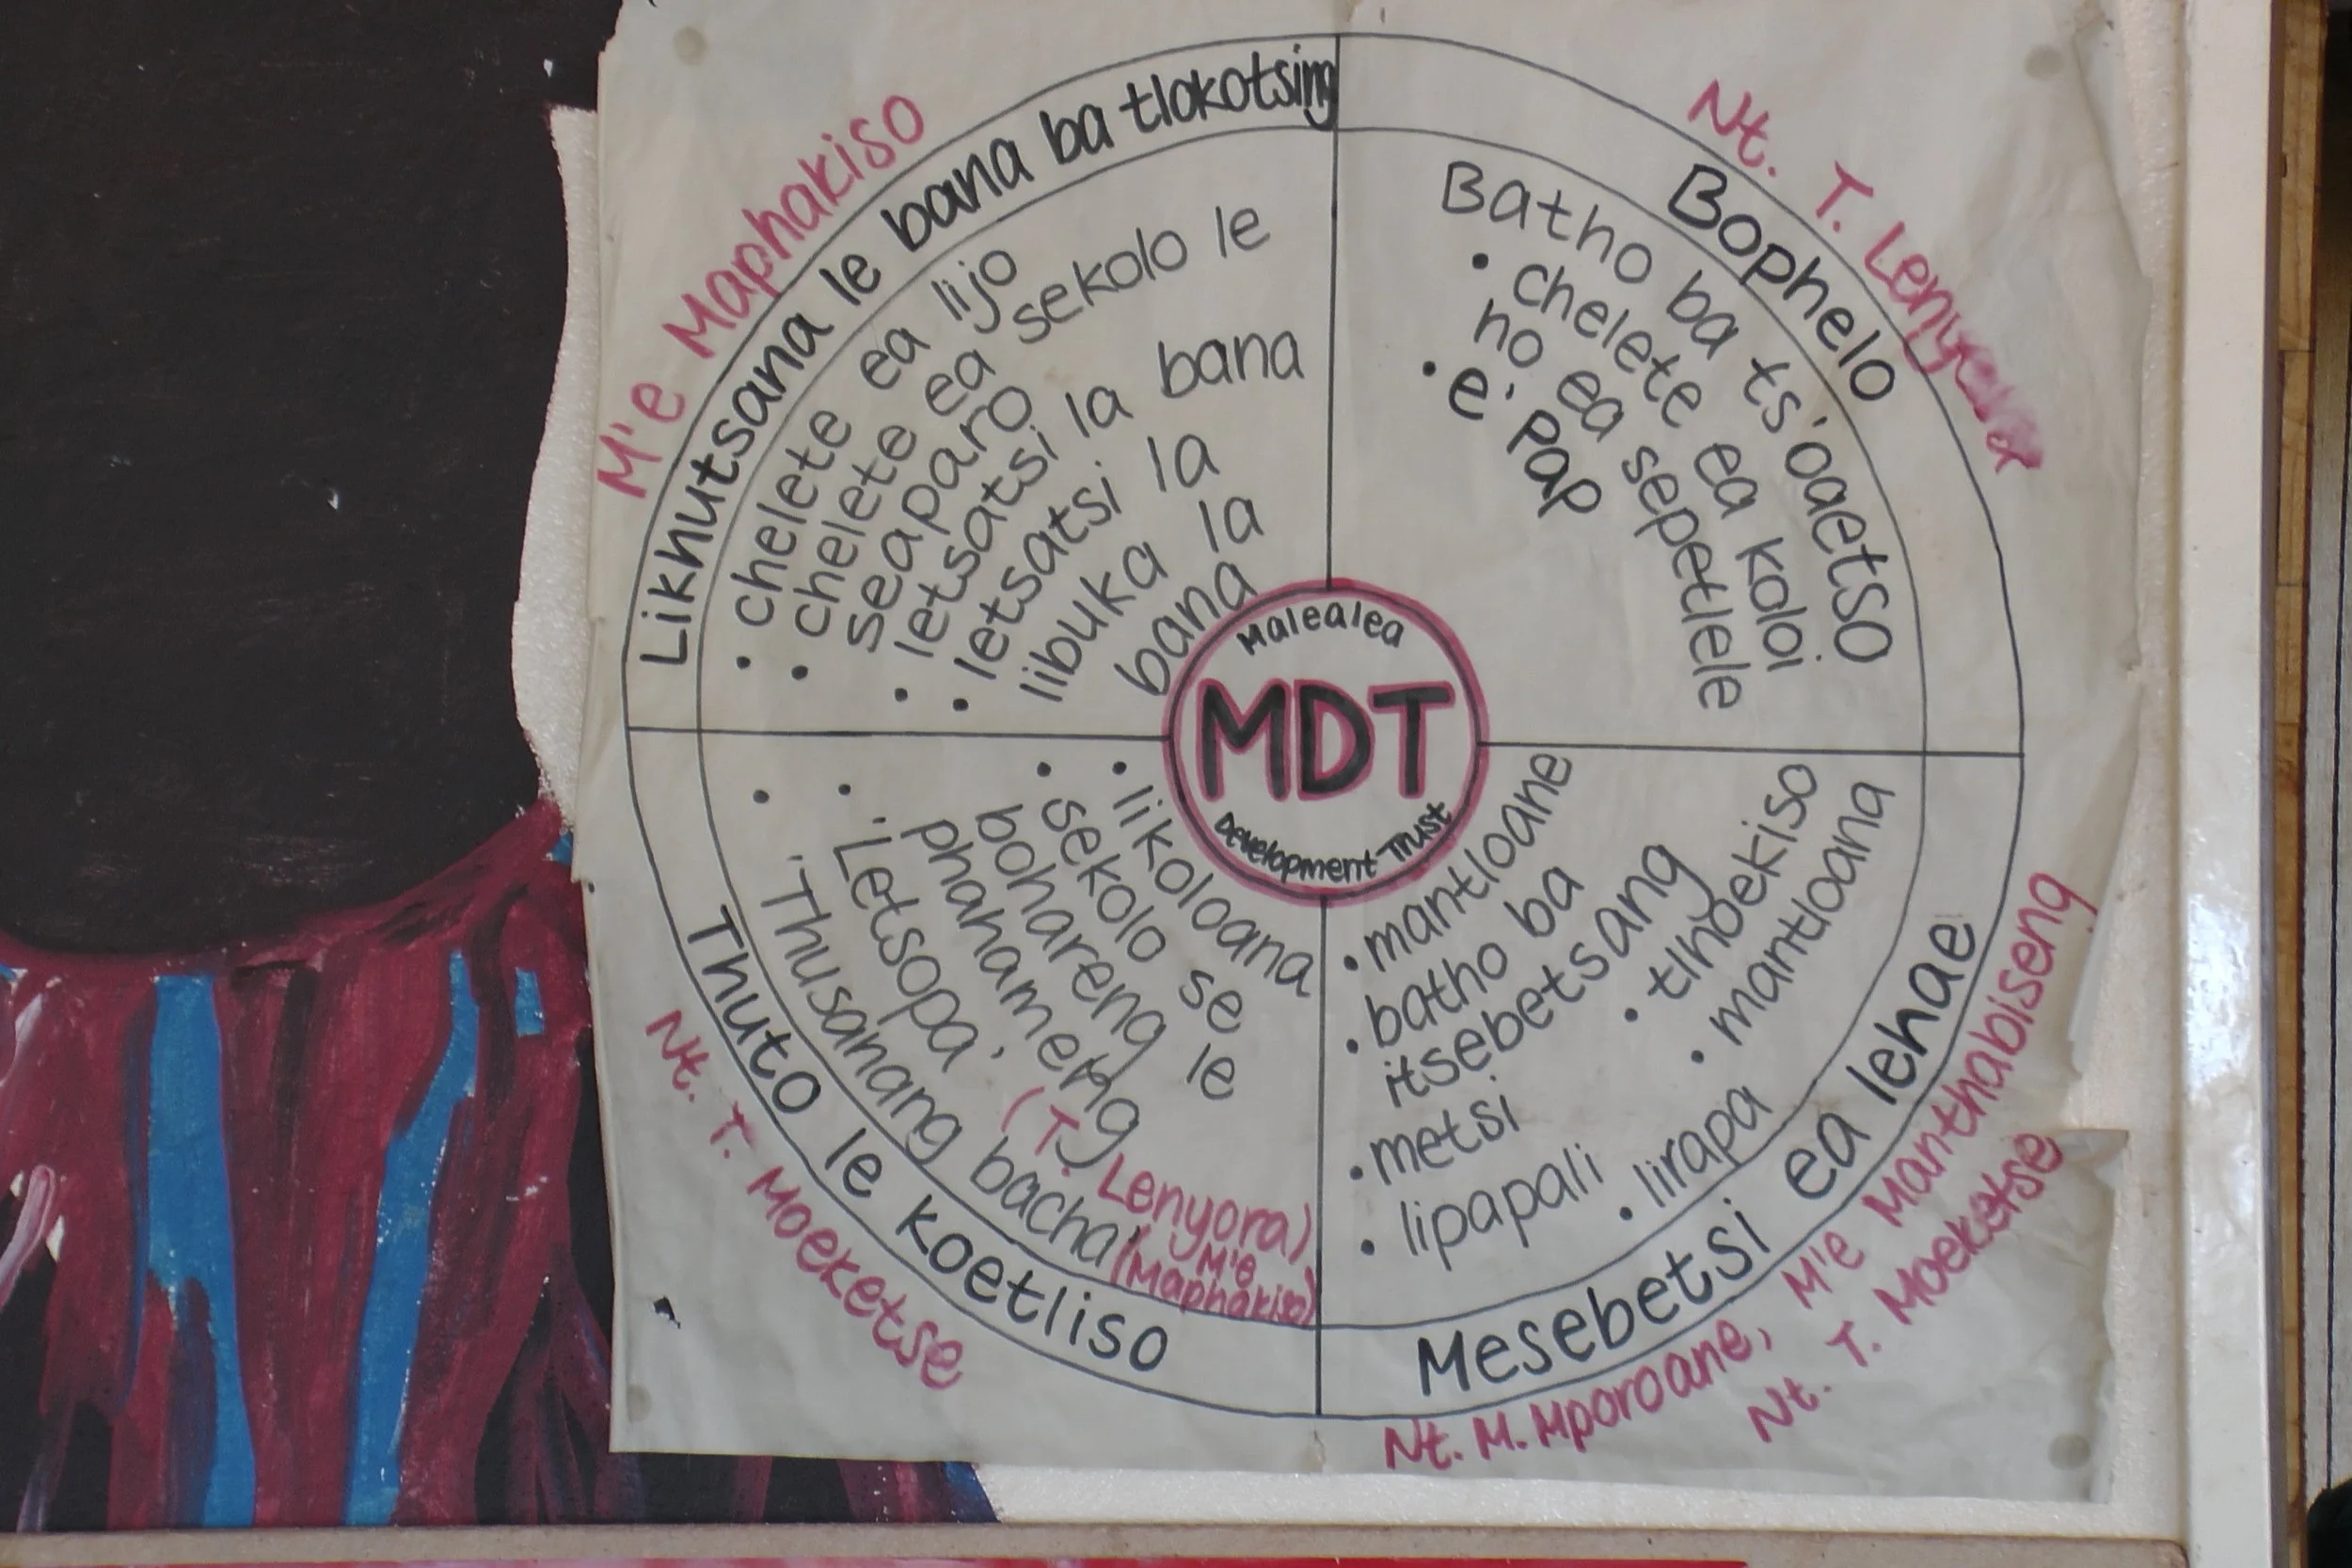 M'e Maphakiso
Likhutsana le bana ba tlokotsing
• chelete ea lijo
• chelete ea sekolo le
seaparo
• letsatsi la bana
• letsatsi la
libuka la
bana
Nt. T.
Bophelo
Batho ba ts'oaetso
• chelete ea koloi
no ea sepetlele
• e' Pap
Malealea
MDT
Development Trust
• likoloana
• sekolo se
bohareng le
phahameng
• 'Letsopa' (T. Lenyora)
• 'Thusanang bacha' (M'e Maphakiso)
Thuto le koetliso
Nt. T. Moeketse
• mantloane
• batho ba
itsebetsang
• metsi
• lipapali
• tlhoekiso
• mantloana
• lirapa
Mesebetsi ea lehae
Nt. M. Mporoane, M'e Manthabiseng
Nt. T. Moeketse